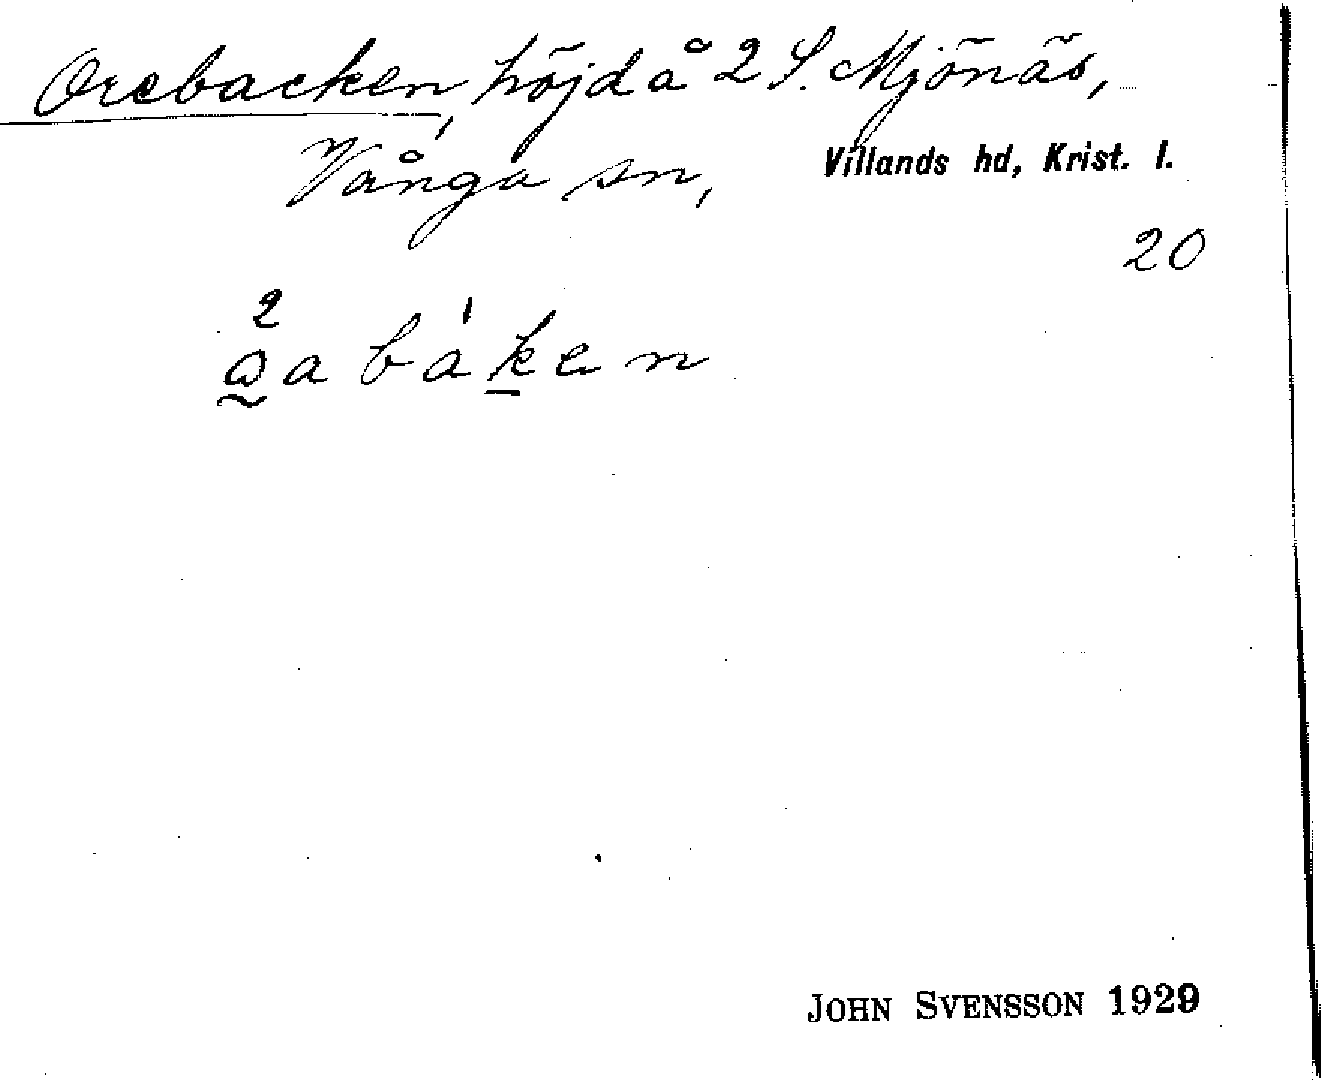 Orebacken, höjd å 2 S. Mjönäs,
Vånga sn, Villands hd, Krist. l.
20
JOHN SVENSSON 1929